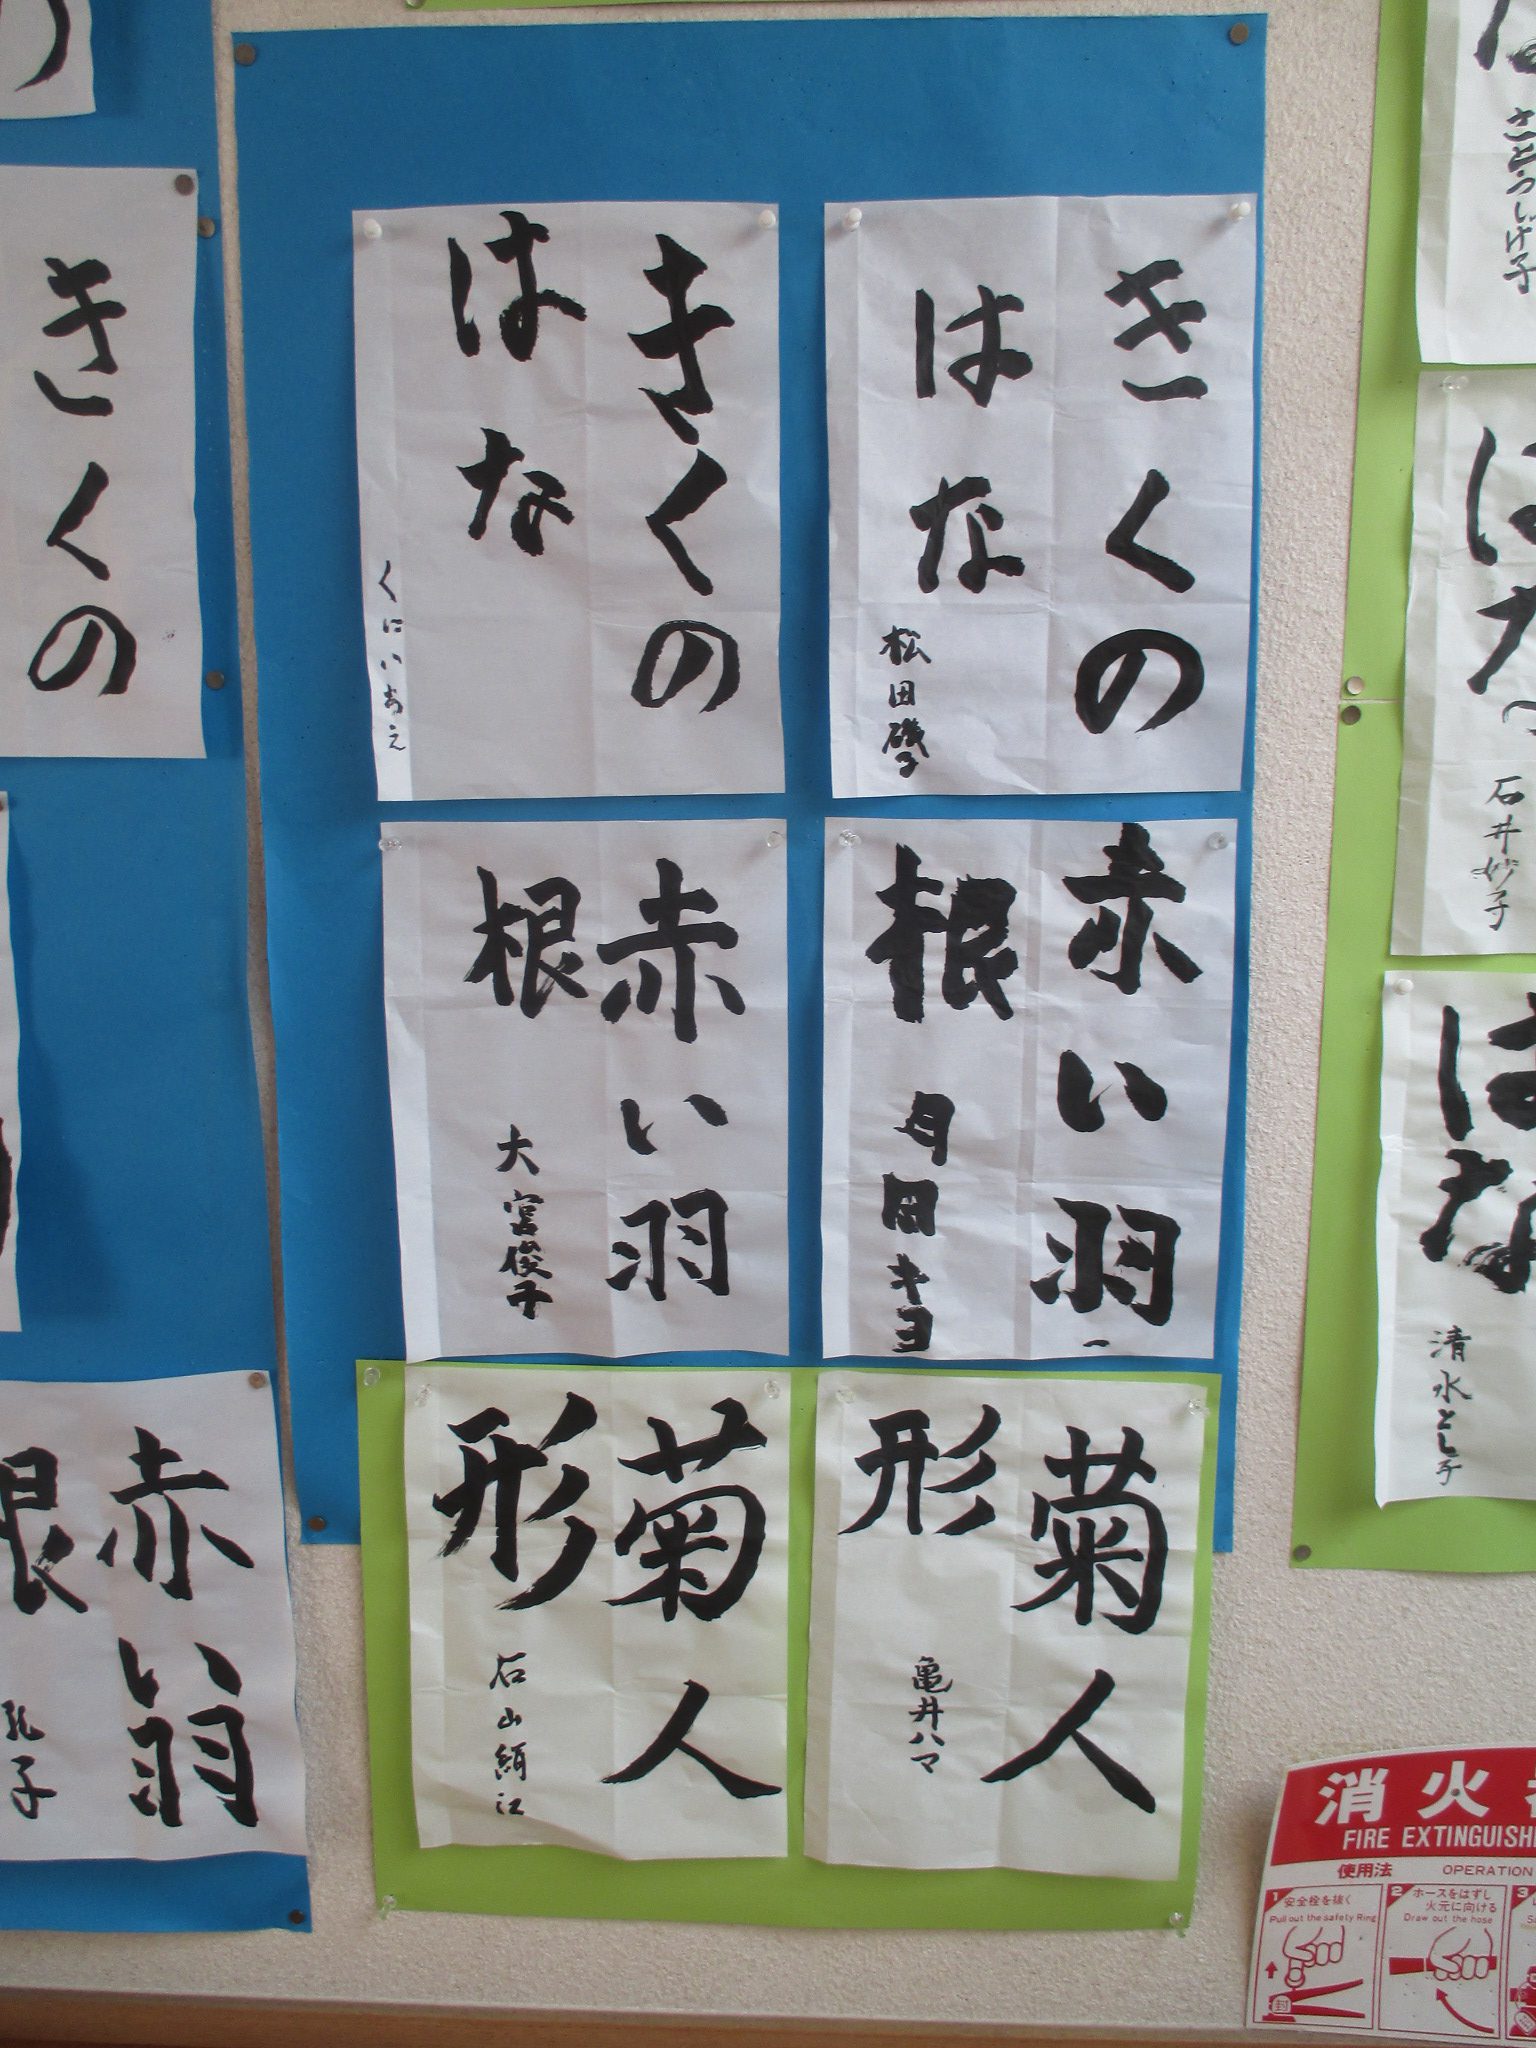 きくの
はな
松田磯子
きくの
はな
くにいあえ
赤い羽
根
月岡キヨ
赤い羽
根
大宮俊子
菊人
形
亀井ハマ
菊人
形
石山絹江
きくの
赤い羽
根
子
さとうしげ子
石井妙子
はな
清水とし子
消火
FIRE EXTINGUISH
使用法
OPERATION
1
安全栓を抜く
Pull out the safety Ring
2
ホースをはずし
火元に向ける
Draw out the hose
3